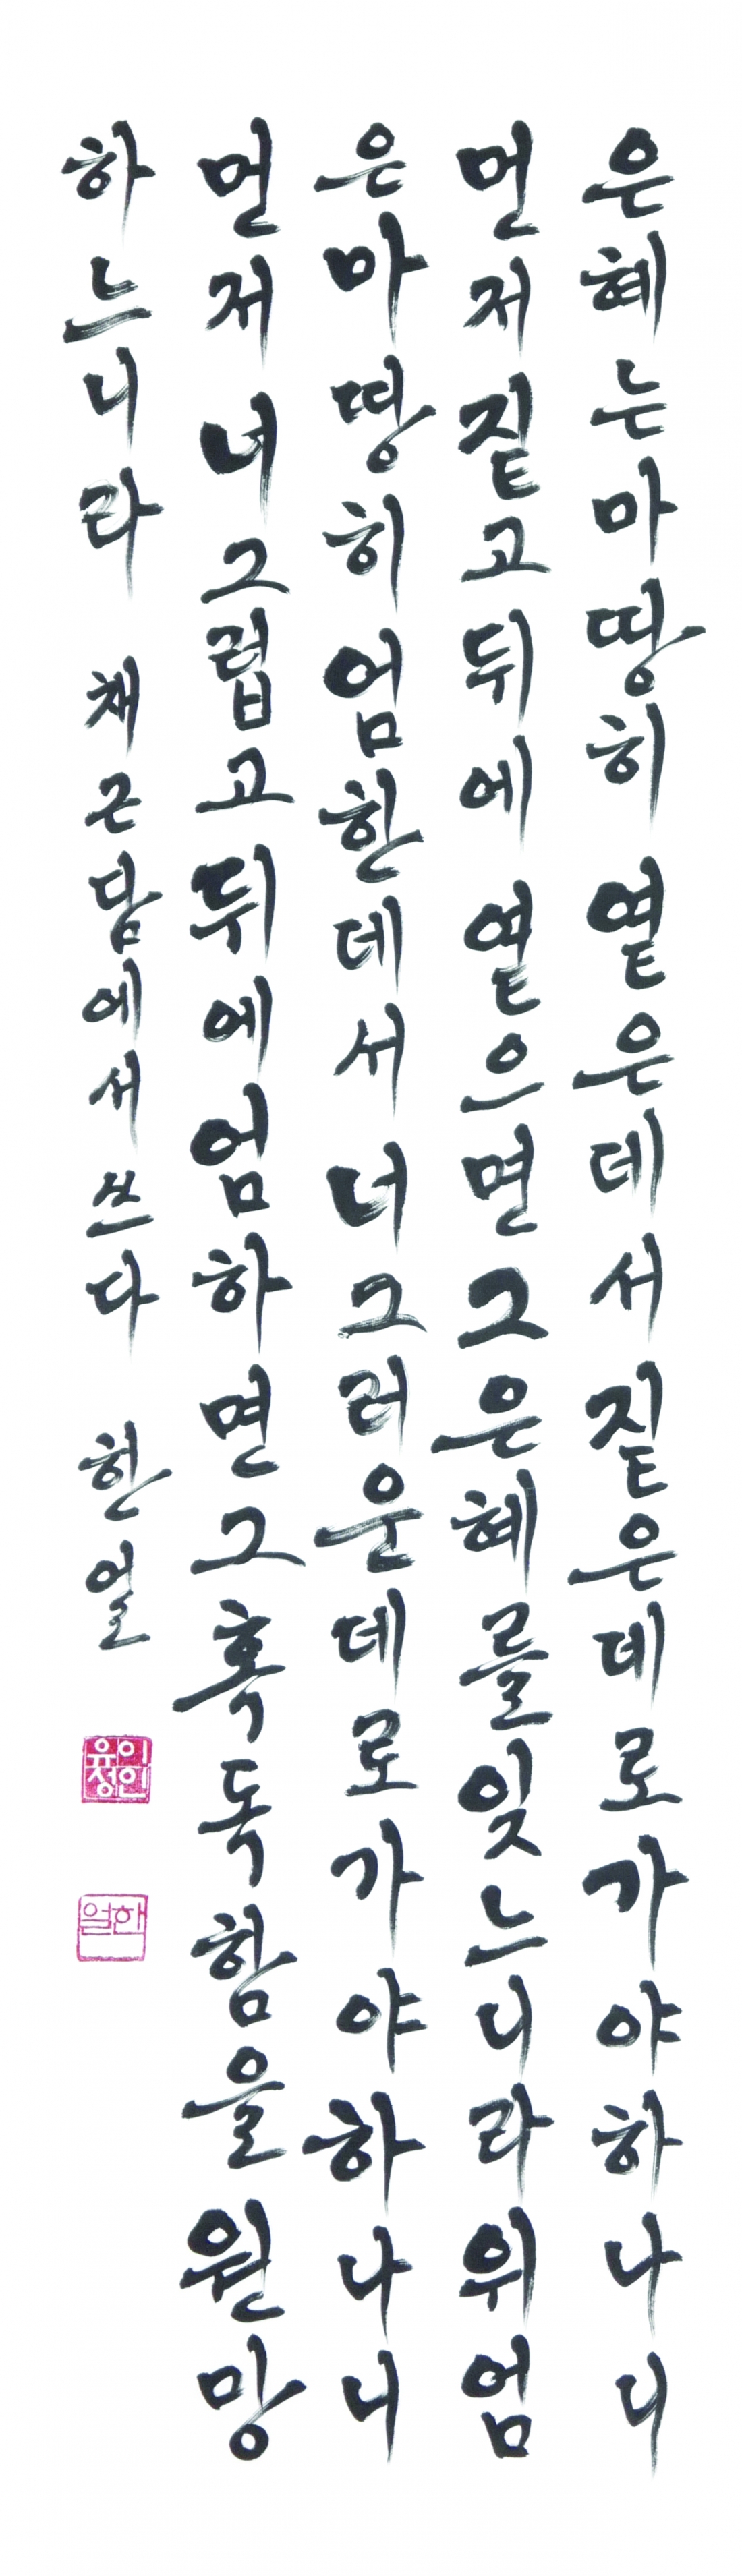 은혜는마땅히 옅은데서 짙은데로가야하나니
먼저짙고뒤에 옅으면그은혜를잊느니라위엄
은마땅히엄한데서 너그러운데로가야하나니
먼저너그럽고뒤에엄하면그혹독함을원망
하느니라 채근담에서쓰다 한얼
한얼